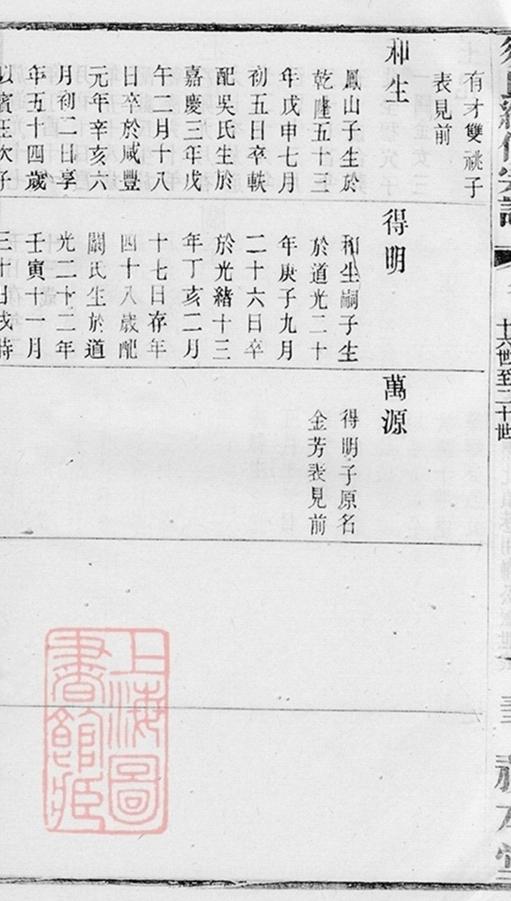 有才雙祧子
表見前
和生
鳳山子生於
乾隆五十三
年戊申七月
初五日卒軼
配吳氏生於
嘉慶三年戊
午二月十八
日卒於咸豐
元年辛亥六
月初二日享
年五十四歲
得明
和生嗣子生
於道光二十
年庚子九月
二十六日卒
於光緒十三
年丁亥二月
十七日存年
四十八歲配
闕氏生於道
光二十二年
壬寅十一月
萬源
得明子原名
金芳表見前
上海圖
書館藏